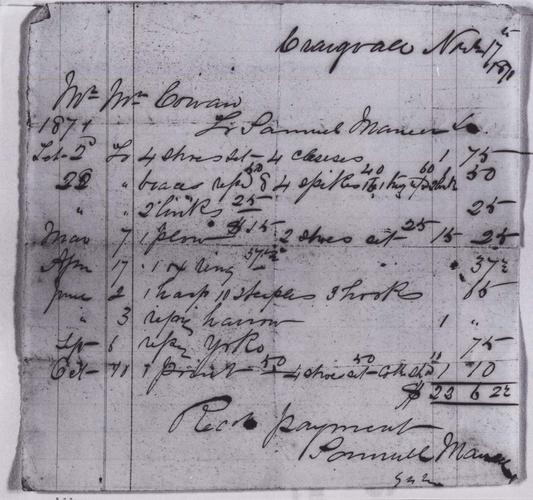 Craigvale Nov 17th
1871
Mr Wm Cowan
1871 To Samuel Dr.
Feb 2d To 4 shoes set 4 1 75
22 " repd 50 & 4 spikes 40 60 50
" " 2 links 25 25
Mar 7 1 plow $15 2 shoes set 25 15 25
Apr 17 1 ox ring 37½ " 37½
June 2 1 hasp 11 steeples 3 hooks 65
" 3 repg harrow 1 "
Sep 6 repg Yoke 75
Oct 11 1 point 50 4 shoes set 50 1 10
$ 23 6 2½
Recd payment
Samuel